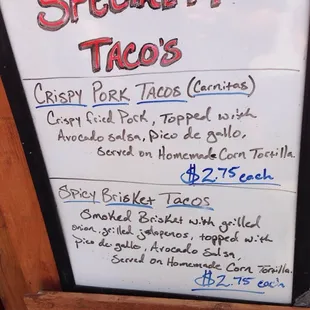 SPECIALTY
TACO'S
CRISPY PORK TACOS (Carnitas)
Crispy fried Pork, Topped with
Avocado salsa, pico de gallo,
Served on Homemade Corn Torilla
$2.75 each
Spicy Brisket Tacos
Smoked Brisket with grilled
onion, grilled jalapenos, topped with
pico de gallo, Avocado Salsa,
Served on Homemade Corn Torilla.
$2.75 each